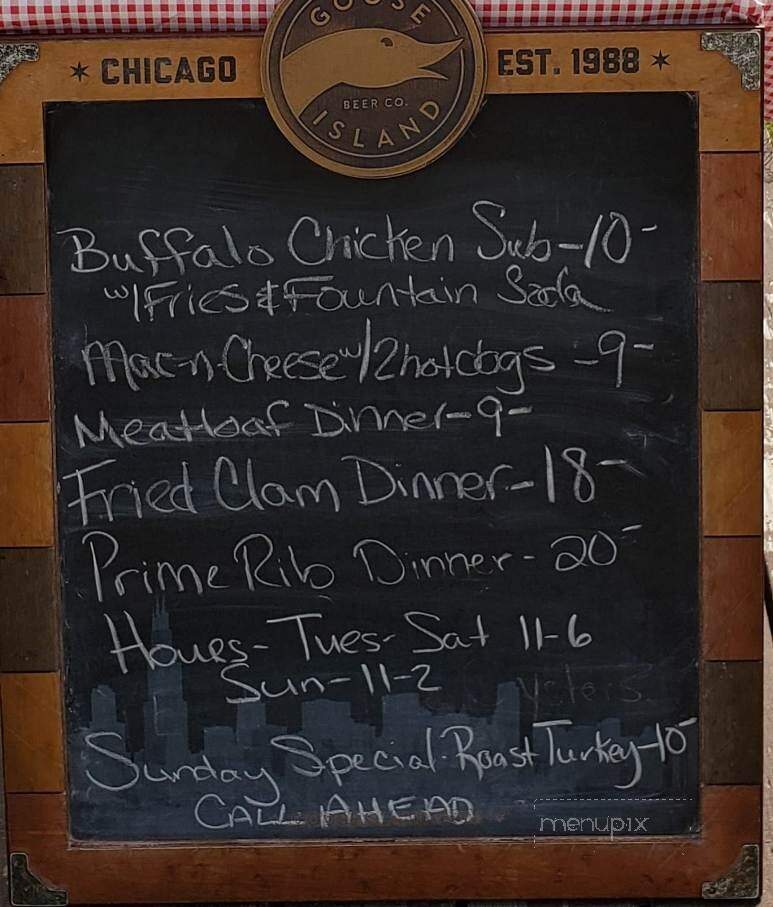 GOOSE
★ CHICAGO EST. 1988 ★
BEER CO.
ISLAND
Buffalo Chicken Sub-10-
w/Fries & Fountain Soda
Mac-n-Cheese w/2hotdogs -9-
Meatloaf Dinner-9-
Fried Clam Dinner-18-
Prime Rib Dinner-20-
Hours-Tues-Sat 11-6
Sun-11-2
Sunday Special-Roast Turkey-10-
CALL AHEAD
menupix